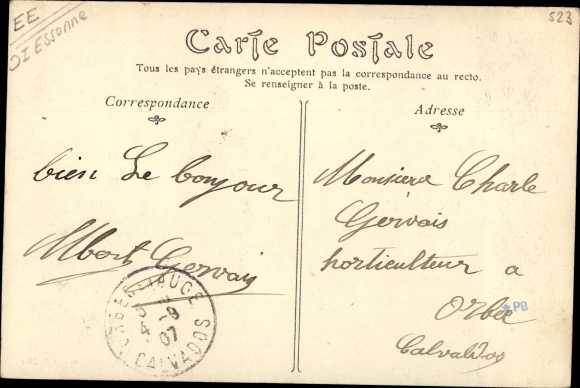 EE
523
Essonne
Carte Postale
Tous les pays étrangers n'acceptent pas la correspondance au recto.
Se renseigner à la poste.
Correspondance
bien Le bonjour
Albert Gervais
AUGE
07
CALVADOS
Adresse
Monsieur Charle
Gervais
horticulteur a
Orbec
PB
Calvados